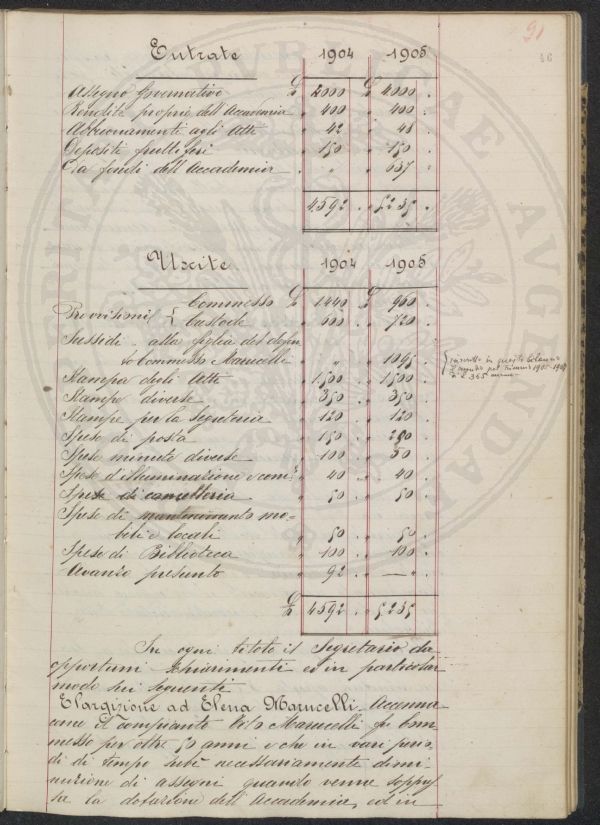 91
Entrate 1904 1905
Assegno Governativo £ 4000 £ 4000 .
Rendite proprie dell'Accademia " 400 " 400 .
Abbuonamenti agli Atti " 42 " 48 .
Depositi fruttiferi " 150 " 150 .
Da fondi dell'Accademia " " " 637 .
4592 . 5235 .
Uscite 1904 1905
Provvisioni { Commesso £ 1440 £ 960 .
Custode " 600 " 720 .
Sussidi - alla figlia del defun-
to Commesso Marucelli " " " 1095 .
Stampa degli Atti " 1500 " 1500 .
Stampe diverse " 350 " 350 .
Stampe per la Segreteria " 120 " 120 .
Spese di posta " 150 " 250 .
Spese minute diverse " 100 " 50 .
Spese d'illuminazione e com. " 40 " 40 .
Spese di cancelleria " 50 " 50 .
Spese di mantenimento mo-
bili e locali " 50 " 50 .
Spese di Biblioteca " 100 " 100 .
Avanzo presunto " 92 " — " .
£ 4592 . 5235 .
In ogni titolo il Segretario da
opportuni schiarimenti ed in particolar
modo sui seguenti
Elargizione ad Elena Marucelli. Accenna
come il compianto Marucelli fu Com-
messo per oltre 50 anni e che in vari perio-
di di tempo subì necessariamente dimi-
nuzione di assegni quando venne soppres-
sa la dotazione dell'Accademia, ed in